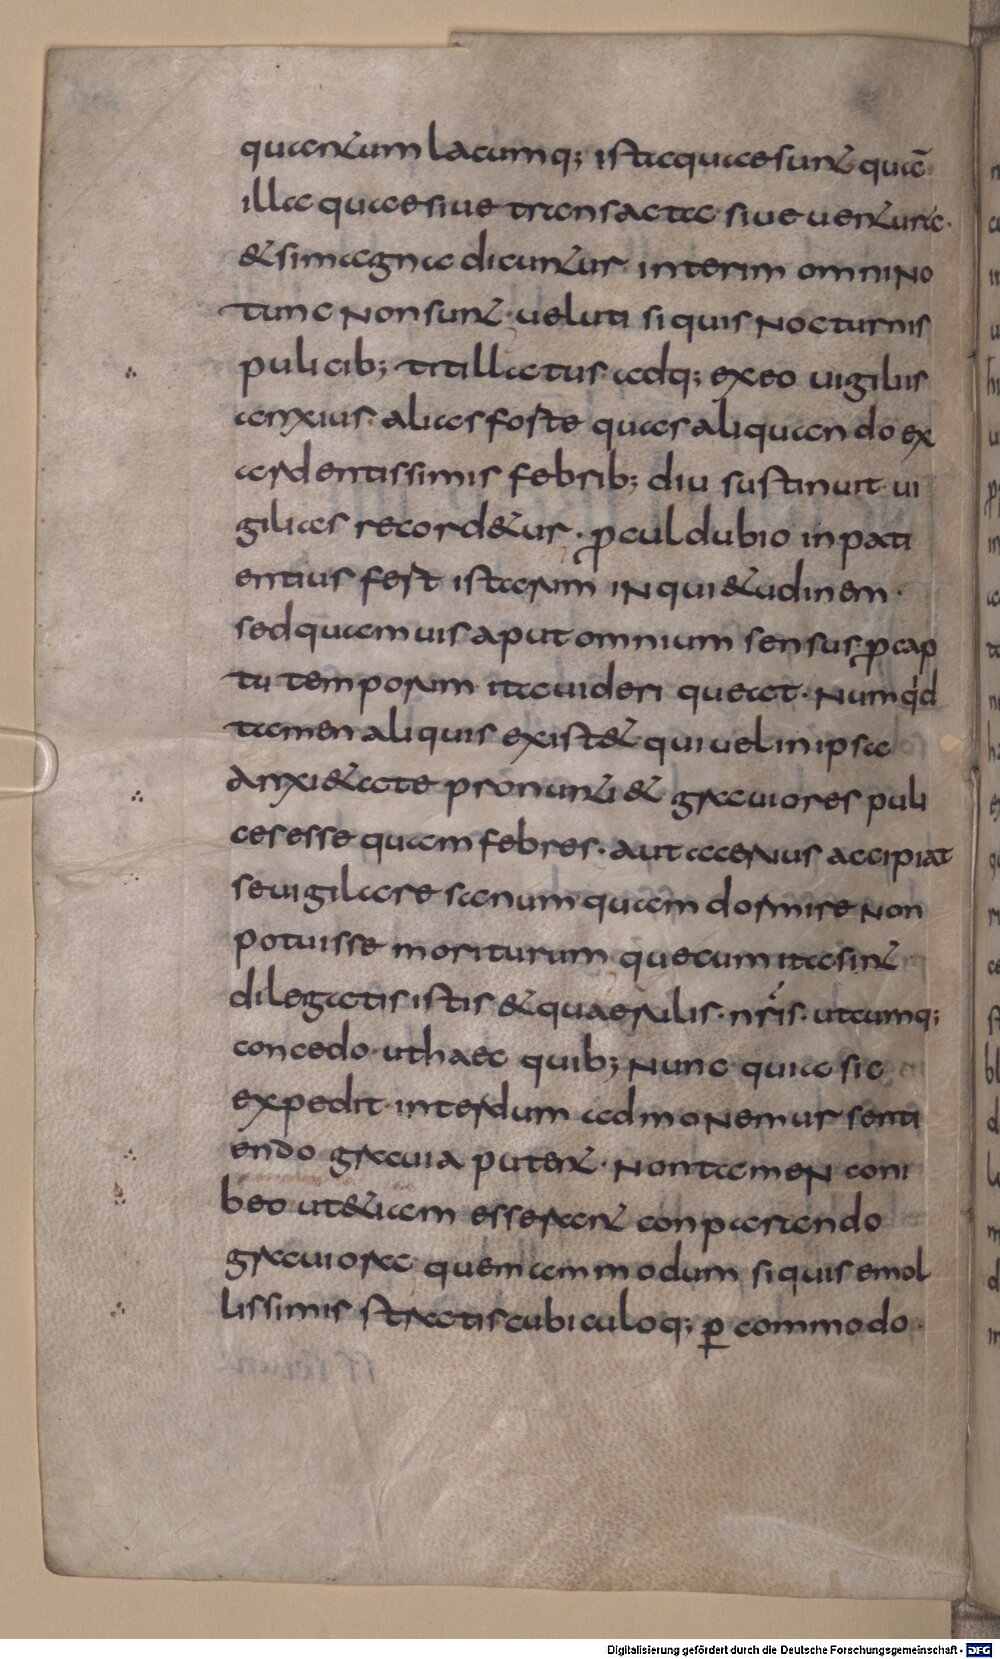 quantumlacumq; istaequaesunt quā
illae quaesiue transactae siue uenturae·
&simagna dicuntur interim omnino
tunc nonsunt· ueluti siquis nocturnis
pulicib; titillatus adq; exeo uigilus
anxius alias forte quas aliquando ex
ardentissimis febrib; diu sustinuit ui
gilias record&ur· ꝓculdubio inpati
entius fert istarum inqui&udinem·
sedquamuis aput omnium sensus ꝓcap
tu temporum itauideri queat· Numqd
tamen aliquis exist& quiuelinipsa
anxi&ate pronunti& grauiores puli
cesesse quam febres· aut aceruus accipiat
seuigilare sanumquam dormire non
potuisse moriturum quecumitasint
dilegatis istis &quaerulis· nris· utcumq;
concedo uthaec quib; Nunc quia sic
expedit interdum admonemur senti
endo grauia putent· Nontamen coni
beo ut&iam esserant conparando
grauiora quemammodum siquis emol
lissimis stratis cubiculoq; ꝑ commodo·
Digitalisierung gefördert durch die Deutsche Forschungsgemeinschaft - DFG